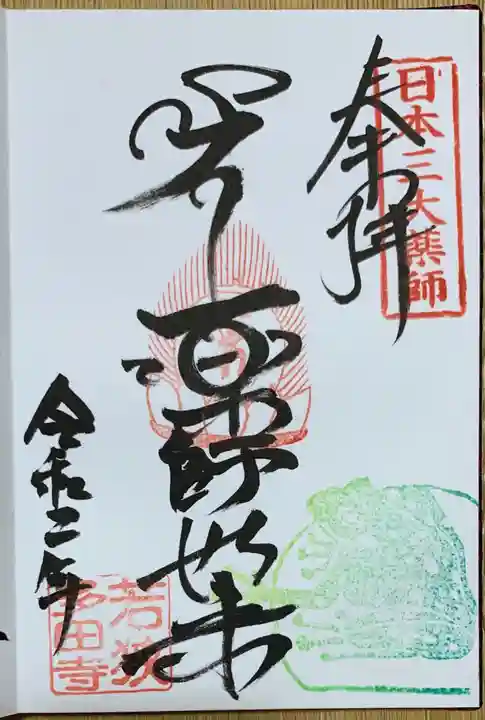 奉拝
日本三大薬師
薬師
令和二年
若狭
多田寺